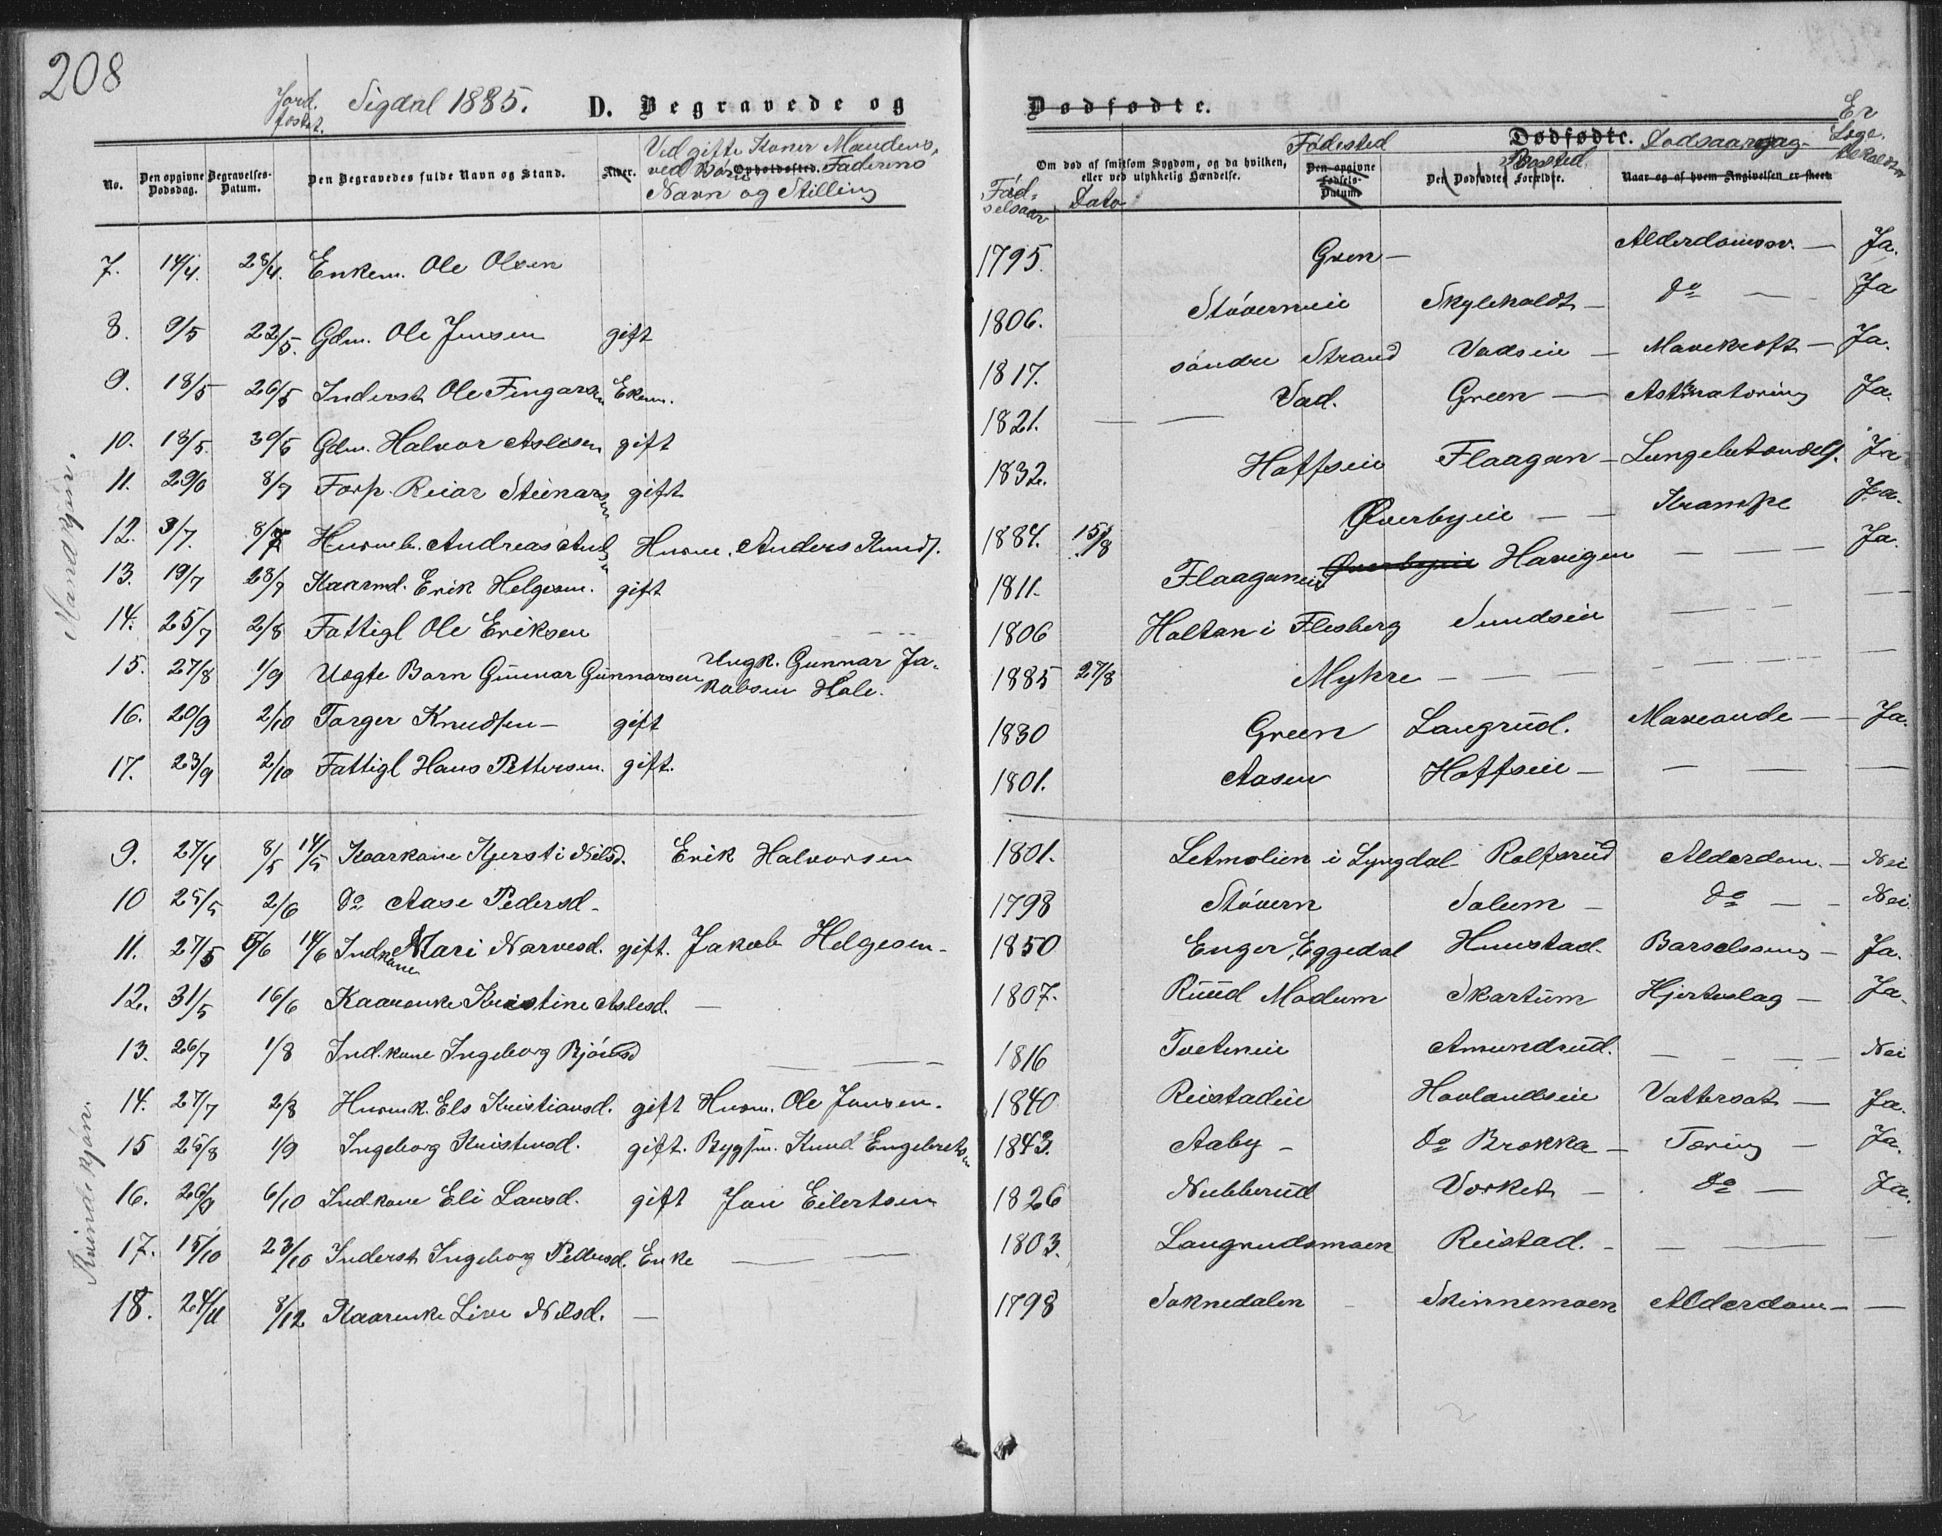 208
Jord. fæstet. Sigdal 1885. D. Begravede og Dødfødte.
No. Den opgivne Dødsdag. Begravelses-Datum. Den Begravedes fulde Navn og Stand. Alder. Opholdssted.
Ved gifte Koner Mandens, ved Børn Faderens Navn og Stilling
Fødselsaar Dato Om død af smitsom Sygdom, og da hvilken, eller ved ulykkelig Hændelse. Fødested Den opgivne Fødsels-Datum. Dødfødte. Bosted Den Dødfødtes Forældre. Dødsaarsag Naar og af hvem Angivelsen er skeet Er Læge
Mandkjøn.
7. 14/4. 28/4. Enkem. Ole Olsen 1795. Gren — Alderdomssv. — Ja.
8. 9/5 22/5. Gdm. Ole Jensen gift 1806. Støverneie Skylekaldt — do — Ja
9. 18/5 26/5 Inderst Ole Fingarsen Ekem. 1817. søndre Strand Vadseie — Mavekræft — Ja.
10. 18/5. 30/5 Gdm. Halvor Aslesen gift 1821. — — Vad. Green — Ja.
11. 29/6 8/7 Forp. Reiar Steinarsen gift 1832. Hoffseie Flaagan — Lungebetændels. Ja
12. 3/7. 8/7 Husmb. Andreas And. Husm. Anders Knuds. 1884. 15/8 Øverbyeie — — Krampe Ja.
13. 19/7 28/7 Kaarmd. Erik Helgesen. gift 1811. Flaaganeie Øverbyeie Havigen — — — Ja.
14. 25/7 2/8 Fattigl Ole Eriksen 1806 Haltan i Flesberg Sundseie — — — —
15. 27/8 1/9 Uægte Barn Gunnar Gunnarsen Ungk. Gunnar Jakobsen Hole. 1885 27/8 Mykre — — —
16. 20/9 2/10 Torger Knudsen — gift 1830 Green Langrud. Maveonde — — Ja.
17. 23/9 2/10 Fattigl Hans Pettersen. gift. 1801. Aasen Hoffseie — — — —
Kvindekjøn.
9. 27/4 8/5 14/5 Kaarkone Kjersti Nilsd. Erik Halvorsen 1801. Letmolien i Lyngdal Rolfsrud Alderdom. — Nei
10 25/5 2/6 do Aase Pedersd — 1798 Støvern Solum — do — — Nei.
11. 27/5 5/6 14/6 Indkone Mari Narvesd. gift. Jakob Helgesen — 1850 Enger, Eggedal Hunstad. Barselseng — Ja.
12. 31/5 16/6 Kaarenke Kristine Aslesd. — 1807. Ruud Modum Skartum Hjerteslag — Ja.
13. 26/7 1/8 Ind.kone Ingeborg Bjørnsd — — — 1816 Tveteneie Amundrud. — — — — Nei
14. 27/7 2/8 Husmk. Els Kristiansd. gift Husm. Ole Jonsen. 1840 Reistadeie Hovlandseie Vattersot — Ja.
15 25/8 1/9 Ingeborg Kristensd. gift. Bygsm. Knud Engebretsen 1843. Aaby — do Brokka — Tæring — Ja.
16. 26/9 6/10 Indkone Eli Larsd. gift Jon Eilertsen 1826 Nubberud Vorket — do — Ja.
17. 15/10 23/10 Inderst Ingeborg Pedersd. Enke — — 1803. Langrudsmoen Reistad. — — —
18. 24/11 8/12 Kaarenke Live Nilsd. — 1798 Soknedalen — Skinnemoen Alderdom — —